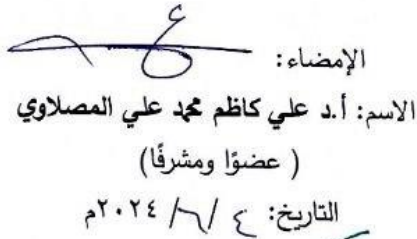 الإمضاء:
الاسم: أ.د علي كاظم محمد علي المصلاوي
( عضوًا ومشرفًا)
التاريخ: ٤ /٦/ ٢٠٢٤م